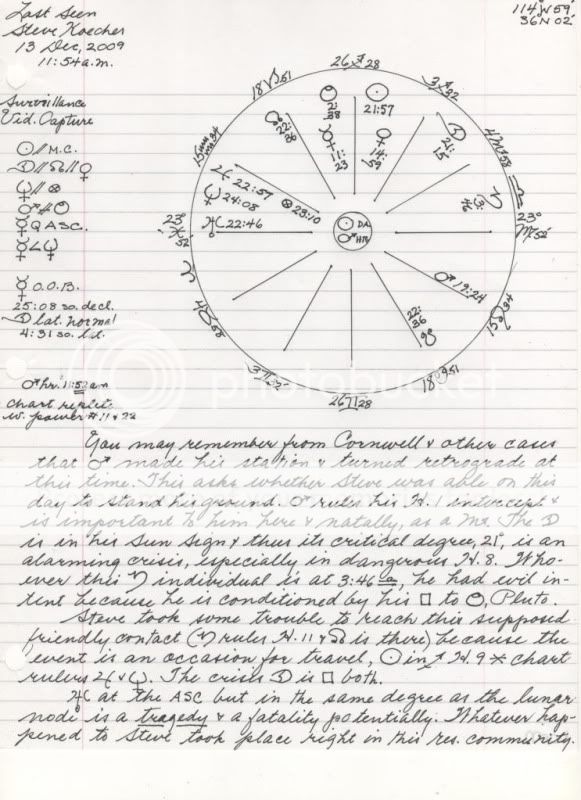 Last Seen
Steve Koecher
13 Dec, 2009
11:54 a.m.
114W59'
36N02'
Surveillance
Vid. Capture
☉//M.C.
☽//☊//♀
♆//⊗
☿Q ASC.
☿∠♆
☿ O.O.B.
25:08 so. decl.
☽ lat. normal
4:31 so. lat.
♂ hr. 11:52 am
chart replete
w. power #11 & 22
26♐28
18♑51
15♒34
23°
♓
52'
♈
4♉58
3♊32
26♊28
18♋51
15♌34
23°
♍52'
♎
4♏58
3♐32
21:57
11:23
14:59
♃ 22:57
♆ 24:08
♅ 22:46
⊗ 23:10
♂ 19:24
22:36
☉ DA
♂ HR
photobucket
You may remember from Cornwell & other cases
that ♂ made his station & turned retrograde at
this time. This asks whether Steve was able on this
day to stand his ground. ♂ rules his H. 1 intercept &
is important to him here & natally, as a Ma. The ☽
is in his Sun sign & thus its critical degree, 21°, is an
alarming crisis, especially in dangerous H. 8. Who-
ever this ♄ individual is at 3:46 ♎, he had evil in-
tent because he is conditioned by his □ to Pluto.
Steve took some trouble to reach this supposed
friendly contact (♄ rules H. 11 & ☊ is there) because the
event is an occasion for travel, ☉ in ♐ H. 9 ⚹ chart
rulers ♃ & ♆. The crisis ☽ is □ both.
♅ at the ASC but in the same degree as the lunar
node is a tragedy & a fatality potentially. Whatever hap-
pened to Steve took place right in this res. community.